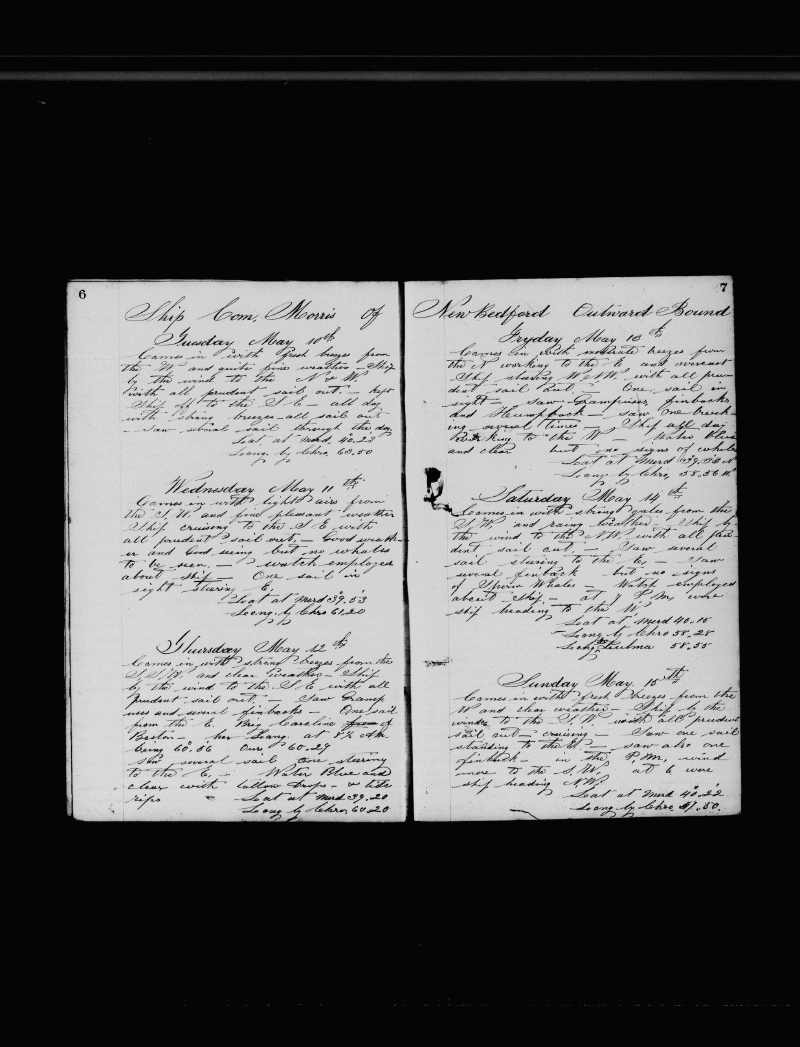 6
Ship Com. Morris Of
Tuesday May 10th
Comes in with fresh breezes from
the W and quite fine weather - Ship
by the wind to the N & W.
with all prudent sail out. - kept
Ship off to the S E - all day
with string breezes all sail out
- Saw several sail through the day
Lat at Merd, 40.28
Long. by Chro, 63.50
Wednesday May 11th
Comes in with light airs from
the S. W. and fine pleasant weather
Ship cruising to the S E with
all prudent sail out, - Good weath-
er and Good seeing but no whales
to be seen. - watch employed
about ship - One sail in
sight steering E,
Lat at Merd 39.53
Long. by Chro 61,20
Thursday May 12th
Comes in with strong breezes from the
S, S, W. and clear weather - Ship
by the wind to the S. E with all
prudent sail out, - Saw Gramp
uses and several finbacks - One sail
from the E. Brig Caroline from of
Boston - her Long. at 8½ Am
being 60.56 Ours 60.29
Saw several sail one steering
to the E, - Water Blue and
clear with tallow Drops - & tide
rips Lat at Merd 39.20
Long by Chro, 60.20
7
New Bedford Outward Bound
Fryday May 13th
Comes in with moderate breezes from
the N working to the E and overcast
Ship steering W S W. with all pru-
dent sail out. - One sail in
sight - Saw Grampuses finbacks
and Humpback - saw one breech-
ing several times - Ship all day
working to the W - Water Blue
and clear but no signs of whales
Lat at Merd 39,38 N
Long by Chro, 58.56 W
Saturday May 14th
Comes in with string gales from the
S. W. and rainy weather - Ship by
the wind to the N W with all pru-
dent sail out, - Saw several
sail steering to the E, - Saw
several finback but no signs
of Sperm Whales - Watch employed
about Ship - at 7 P.M, wore
ship heading to the W.
Lat at Merd 40.15
Long by Chro 58.28
Long 58.55
Sunday May, 15th
Comes in with fresh breezes from the
W and clear weather - Ship by the
wind to the S. W. with all prudent
sail out - cruising - Saw one sail
standing to the - saw also one
finback - in the P.M, wind
more to the S. W, at 6 wore
ship heading N. W,
Lat at Merd 40.22
Long by Chro, 57.50.